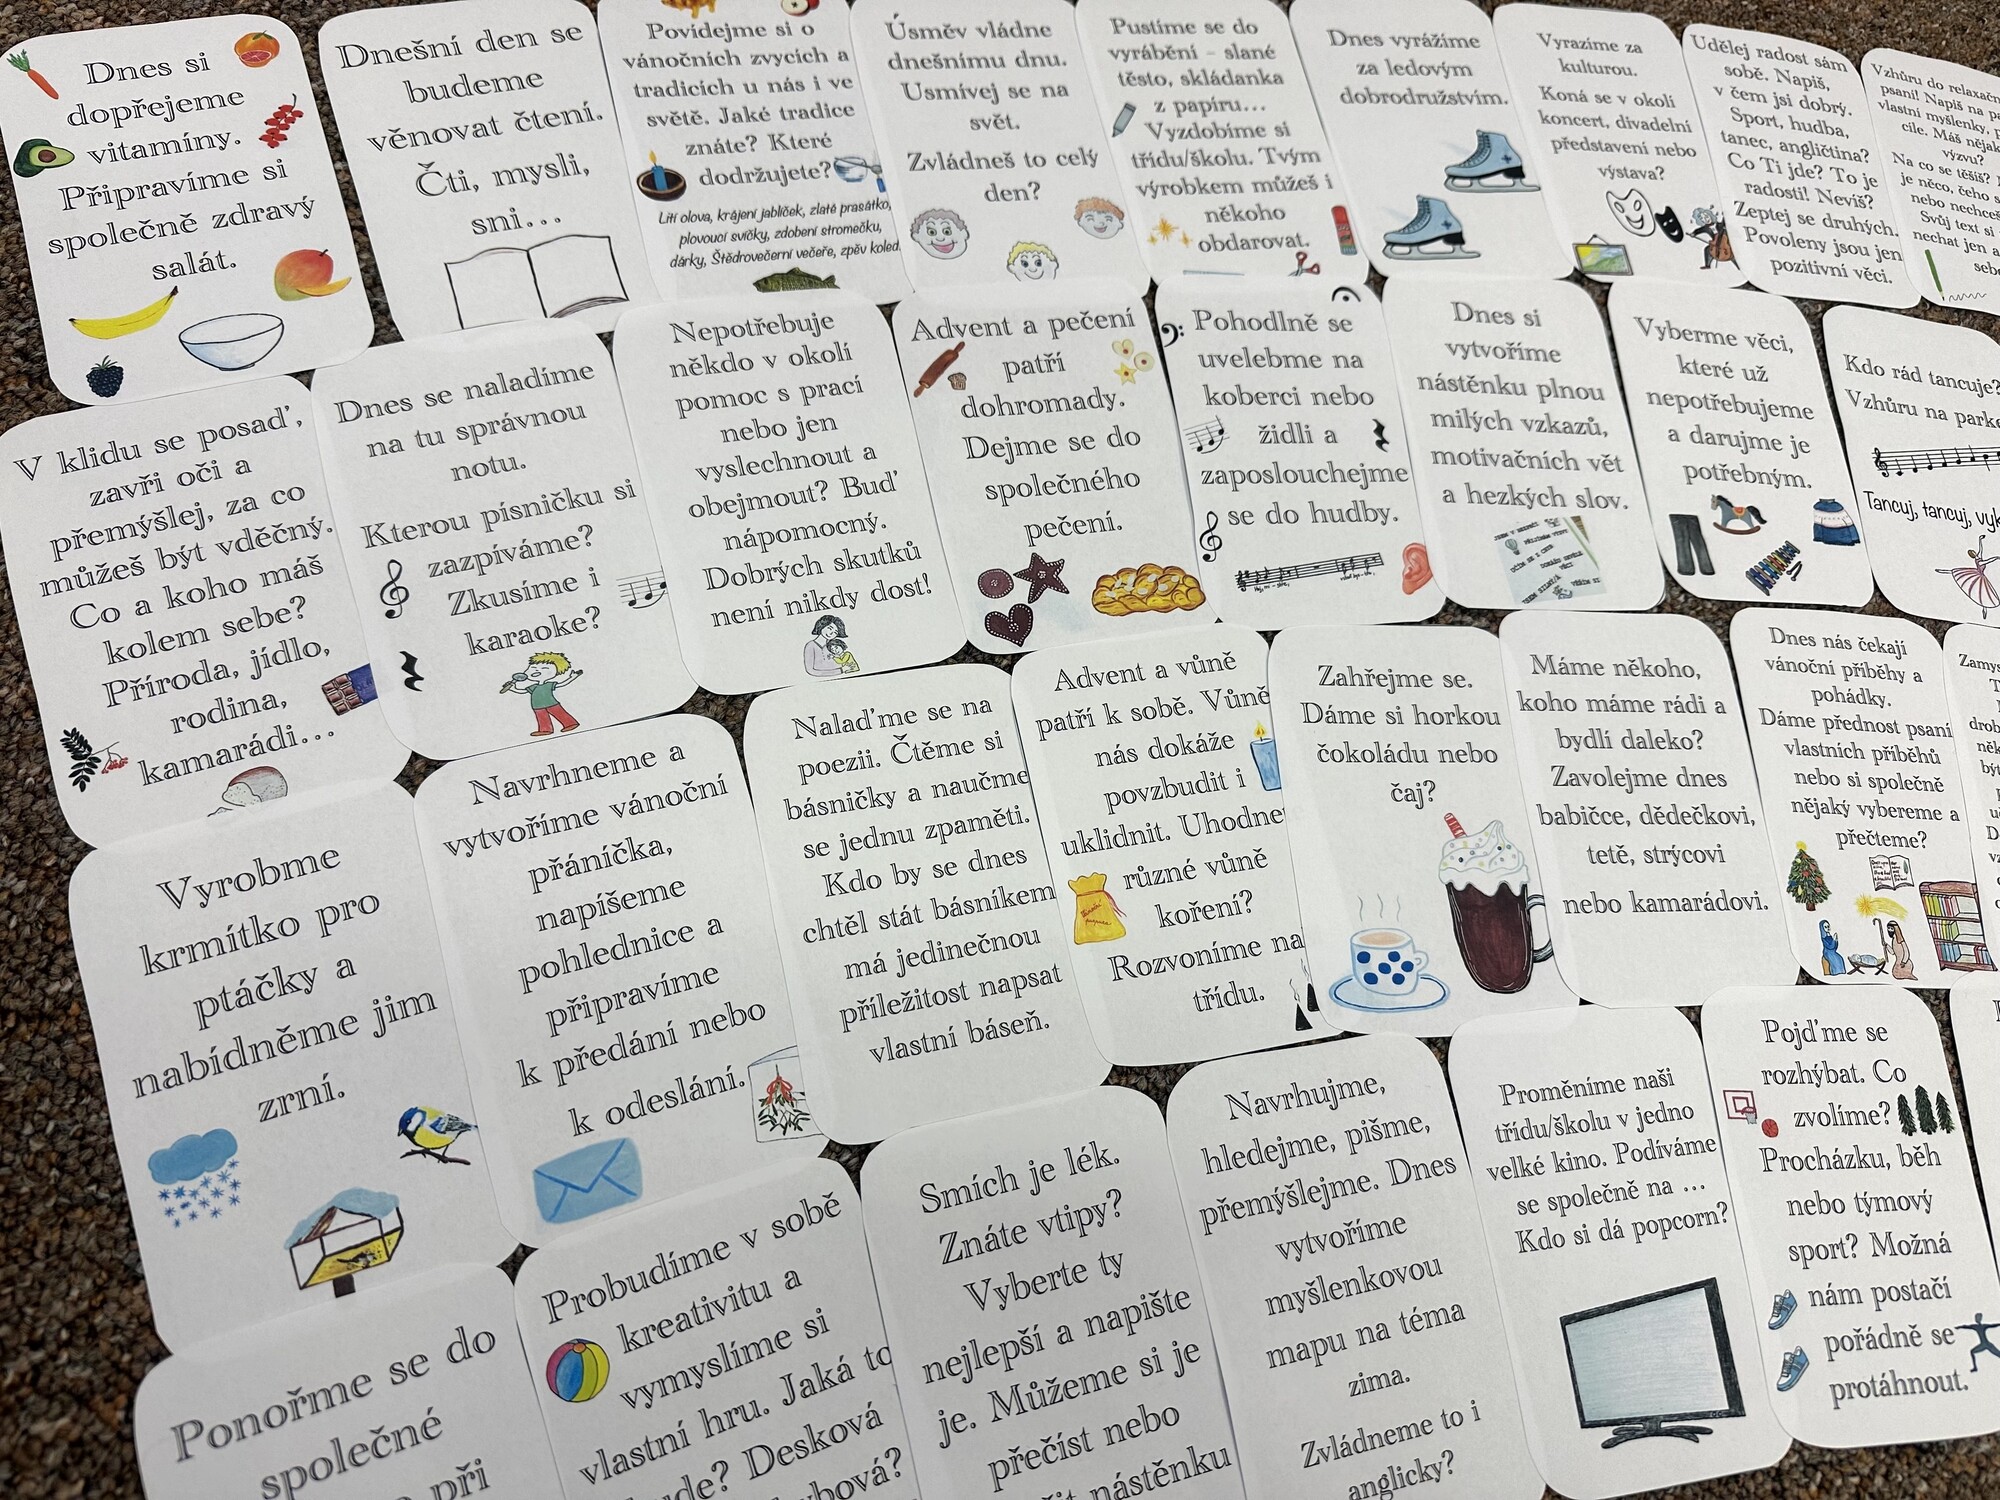 Dnes si
dopřejeme
vitamíny.
Připravíme si
společně zdravý
salát.
Dnešní den se
budeme
věnovat čtení.
Čti, mysli,
sni...
Povídejme si o
vánočních zvycích a
tradicích u nás i ve
světě. Jaké tradice
znáte? Které
dodržujete?
Lití olova, krájení jablíček, zlaté prasátko,
plovoucí svíčky, zdobení stromečku,
dárky, Štědrovečerní večeře, zpěv koled
Úsměv vládne
dnešnímu dnu.
Usmívej se na
svět.
Zvládneš to celý
den?
Pustíme se do
vyrábění – slané
těsto, skládanka
z papíru...
Vyzdobíme si
třídu/školu. Tvým
výrobkem můžeš i
někoho
obdarovat.
Dnes vyrážíme
za ledovým
dobrodružstvím.
Vyrazíme za
kulturou.
Koná se v okolí
koncert, divadelní
představení nebo
výstava?
Udělej radost sám
sobě. Napiš,
v čem jsi dobrý.
Sport, hudba,
tanec, angličtina?
Co Ti jde? To je
radosti! Nevíš?
Zeptej se druhých.
Povoleny jsou jen
pozitivní věci.
Vzhůru do relaxačn
psaní! Napiš na pa
vlastní myšlenky, p
cíle. Máš nějak
výzvu?
Na co se těšíš?
je něco, čeho s
nebo nechceš
Svůj text si
nechat jen a
sebe
V klidu se posaď,
zavři oči a
přemýšlej, za co
můžeš být vděčný.
Co a koho máš
kolem sebe?
Příroda, jídlo,
rodina,
kamarádi...
Dnes se naladíme
na tu správnou
notu.
Kterou písničku si
zazpíváme?
Zkusíme i
karaoke?
Nepotřebuje
někdo v okolí
pomoc s prací
nebo jen
vyslechnout a
obejmout? Buď
nápomocný.
Dobrých skutků
není nikdy dost!
Advent a pečení
patří
dohromady.
Dejme se do
společného
pečení.
Pohodlně se
uvelebme na
koberci nebo
židli a
zaposlouchejme
se do hudby.
Dnes si
vytvoříme
nástěnku plnou
milých vzkazů,
motivačních vět
a hezkých slov.
Vyberme věci,
které už
nepotřebujeme
a darujme je
potřebným.
Kdo rád tancuje?
Vzhůru na parke
Tancuj, tancuj, vyk
Vyrobme
krmítko pro
ptáčky a
nabídněme jim
zrní.
Navrhneme a
vytvoříme vánoční
přáníčka,
napíšeme
pohlednice a
připravíme
k předání nebo
k odeslání.
Nalaďme se na
poezii. Čtěme si
básničky a naučme
se jednu zpaměti.
Kdo by se dnes
chtěl stát básníkem
má jedinečnou
příležitost napsat
vlastní báseň.
Advent a vůně
patří k sobě. Vůně
nás dokáže
povzbudit i
uklidnit. Uhodnet
různé vůně
koření?
Rozvoníme na
třídu.
Zahřejme se.
Dáme si horkou
čokoládu nebo
čaj?
Máme někoho,
koho máme rádi a
bydlí daleko?
Zavolejme dnes
babičce, dědečkovi,
tetě, strýcovi
nebo kamarádovi.
Dnes nás čekají
vánoční příběhy a
pohádky.
Dáme přednost psaní
vlastních příběhů
nebo si společně
nějaký vybereme a
přečteme?
Zamys
Ponořme se do
společné
při
Probudíme v sobě
kreativitu a
vymyslíme si
vlastní hru. Jaká to
Desková
Smích je lék.
Znáte vtipy?
Vyberte ty
nejlepší a napište
je. Můžeme si je
přečíst nebo
nástěnku
Navrhujme,
hledejme, pišme,
přemýšlejme. Dnes
vytvoříme
myšlenkovou
mapu na téma
zima.
Zvládneme to i
anglicky?
Proměníme naši
třídu/školu v jedno
velké kino. Podíváme
se společně na ...
Kdo si dá popcorn?
Pojďme se
rozhýbat. Co
zvolíme?
Procházku, běh
nebo týmový
sport? Možná
nám postačí
pořádně se
protáhnout.